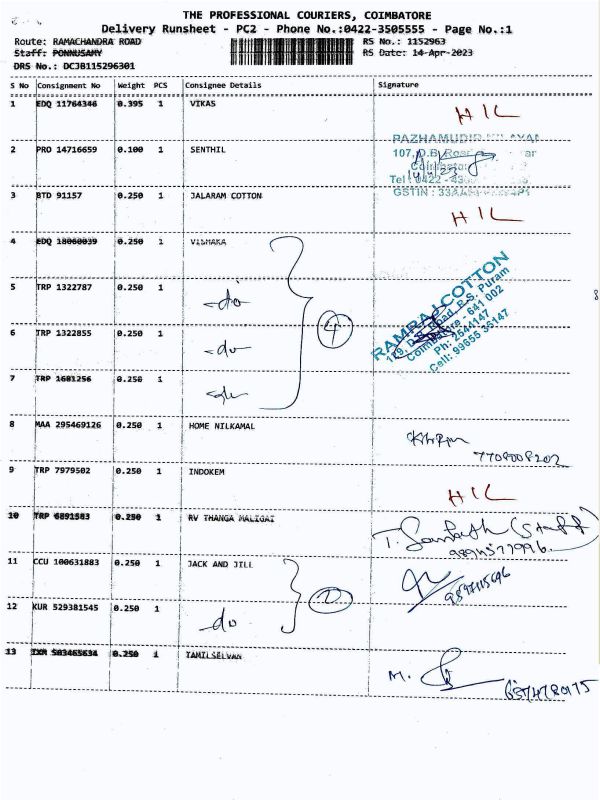 THE PROFESSIONAL COURIERS, COIMBATORE
Delivery Runsheet - PC2 - Phone No.:0422-3505555 - Page No.:1
Route: RAMACHANDRA ROAD
RS No.: 1152963
Staff: PONNUSAMY
RS Date: 14-Apr-2023
DRS No.: DCJB115296301
S No Consignment No Weight PCS Consignee Details Signature
1 EDQ 11764346 0.395 1 VIKAS HIL
2 PRO 14716659 0.100 1 SENTHIL
PAZHAMUDIR
107, D.B. Road
Coimbatore
Tel : 0422 -
GSTIN : 33AA
14/4/23
3 BTD 91157 0.250 1 JALARAM COTTON HIL
4 EDQ 18060039 0.250 1 VISHAKA
5 TRP 1322787 0.250 1 -do-
6 TRP 1322855 0.250 1 -do-
7 TRP 1681256 0.250 1 -do-
4
RAMRAJ COTTON
119, D.B. Road, R.S. Puram
Coimbatore - 641 002
Ph: 2544147
Cell: 99655 36147
8 MAA 295469126 0.250 1 HOME NILKAMAL
7708008202
9 TRP 7979502 0.250 1 INDOKEM HIL
10 TRP 6891583 0.250 1 RV THANGA MALIGAI T. Sampath (Staff)
11 CCU 100631883 0.250 1 JACK AND JILL
12 KUR 529381545 0.250 1 -do
2
13 IXM 503465634 0.250 1 TAMILSELVAN M.